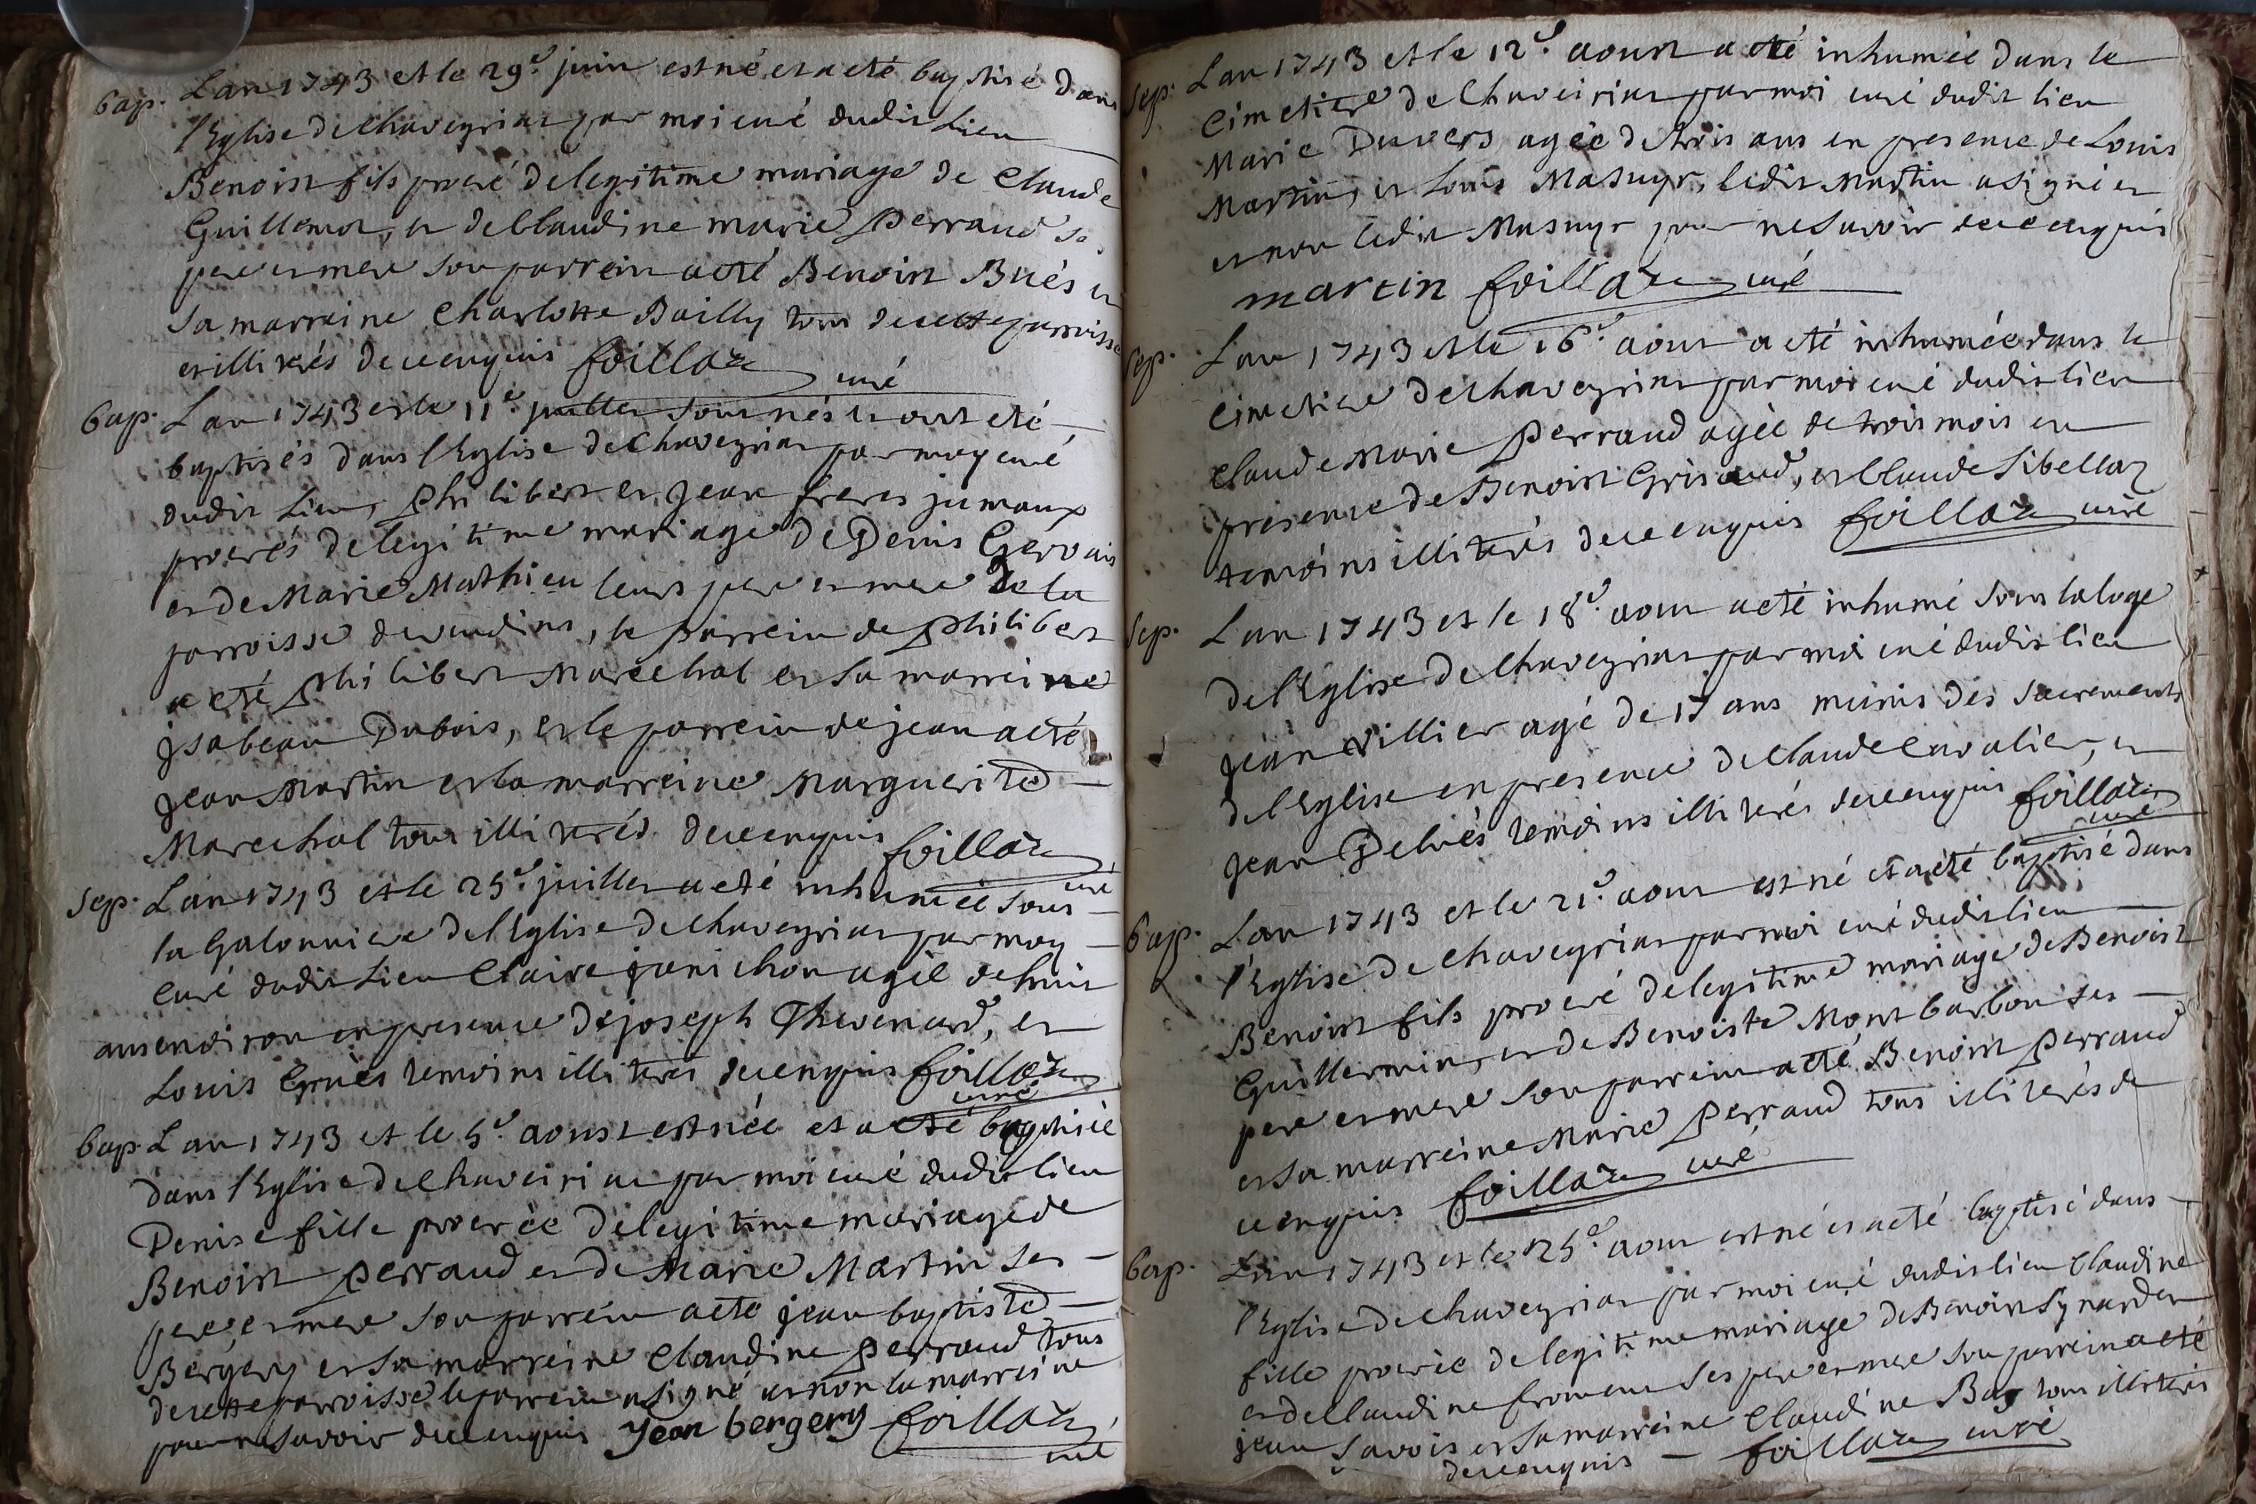 bap. Lan 1743 et le 29e. juin est né et a eté baptisé dans
l'Eglise de Chaveyriat par moi curé dudit Lieu
Benoist fils procreé de legitime mariage de Claude
Guillemot, et de Claudine marie perraud ses
pere et mere son parrein a eté Benoist Bués et
Sa marraine Charlotte Bailly tous de cette parroisse
et illiterés de ce enquis foillaz curé
bap. Lan 1743 et le 11e. juillet sont nés et ont eté
baptisés dans l'Eglise de Chaveyriat par moy curé
dudit Lieu, philibert et jean freres jumaux
procreés de legitime mariage de Denis Gervais
et de Marie Mathieu leurs pere et mere de la
parroisse de vandins, le parrein de philibert
a eté philibert Marechal et sa marreine
jsabeau Dubois, et le parrein de jean a eté
jean Martin et la marreine Marguerite
Marechal tous illiterés de ce enquis foillaz
curé
Sep. Lan 1743 et le 25e. juillet a eté inhumée sous
la Galonniere de l'Eglise de Chaveyriat par moy
Curé dudit Lieu Claire janichon agée de huit
ans environ en presence de joseph Thevenard, et
Louis Gruès temoins illiterés de ce enquis foillaz
curé
bap. Lan 1743 et le 5e. aoust est née et a eté baptisée
dans l'Eglise de Chaveiriat par moi curé dudit lieu
Denise fille procreée de legitime mariage de
Benoist perraud et de Marie Martin ses
pere et mere son parrein a eté jean baptiste
Bergery et sa marreine Claudine perraud tous
de cette parroisse le parrein a signé et non la marreine
pour ne savoir de ce enquis Jean bergery foillaz
curé
Sep. Lan 1743 et le 12e. aoust a eté inhumée dans le
Cimetiere de Chaveiriat par moi curé dudit lieu
Marie Duvers agée de trois ans en presence de Louis
Martin, et Louis Masuyr, ledit Martin a signé et
et non ledit Masuyr pour ne savoir de ce enquis
martin foillaz curé
Sep. Lan 1743 et le 16e. aout a eté inhumée dans le
Cimetiere de Chaveyriat par moi curé dudit lieu
Claude Marie perraud agée de trois mois en
presence de Benoist Grisaud, et Claude Sibellaz
temoins illiterés de ce enquis foillaz curé
Sep. Lan 1743 et le 18e. aout a eté inhumé sous la loge
de l'Eglise de Chaveyriat par moi curé dudit lieu
jean villier agé de 17 ans munis des sacrements
de l'Eglise en presence de Claude Cavalier, et
jean Delués temoins illiterés de ce enquis foillaz
curé
bap. Lan 1743 et le 21e. aout est né et a eté baptisé dans
l'Eglise de Chaveyriat par moi curé dudit lieu
Benoist fils procreé de legitime mariage de Benoist
Guillermin, et de Benoiste Montbarbon ses
pere et mere son parrein a eté Benoist perraud
et sa marreine Marie perraud tous illiterés de
ce enquis foillaz curé
bap. Lan 1743 et le 25e. aout est né et a eté baptisé dans
l'Eglise de Chaveyriat par moi curé dudit lieu Claudine
fille procreée de legitime mariage de Benoist Synarder
et de Claudine froment ses pere et mere son parrein a eté
jean Savois et sa marreine Claudine Bay tous illiterés
de ce enquis foillaz curé